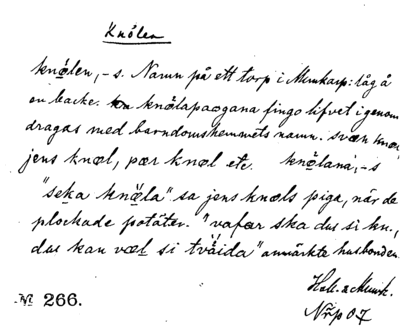 Knölen
knölen, -s. Namn på ett torp i Munkarp: låg å
en backe. knölapaogana fingo lifvet igenom
dragas med barndomshemmets namn. svæn knœl
jens knœl, pær knœl etc. knölana, -s
"seka knöla" sa jens knœls piga, når de
plockade potäter. "vafær ska dus si kn.,
dus kan væl si tvåida" anmärkte husbonden.
Hall. & Munk.
Nrp 07
№ 266.